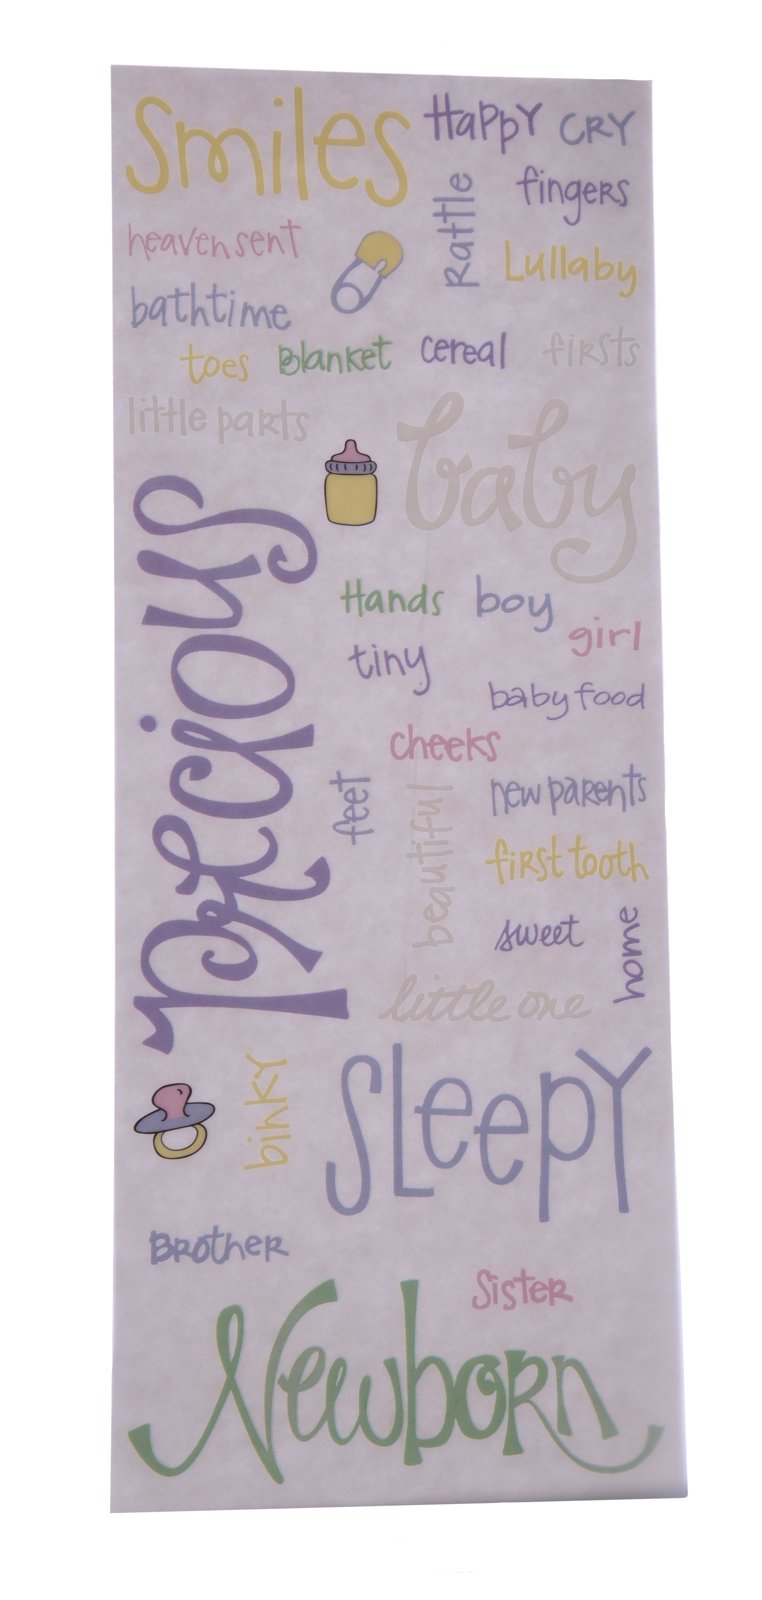 smiles
Happy
CRY
Rattle
fingers
heaven sent
Lullaby
bathtime
toes
Blanket
cereal
firsts
little parts
baby
precious
Hands
boy
girl
tiny
baby food
cheeks
feet
new parents
beautiful
first tooth
sweet
home
little one
binky
SLeepy
BRotheR
Sister
NewboRn